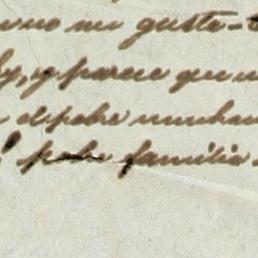 no me gusta
y parece que
el pobre muchac
! pobre familia